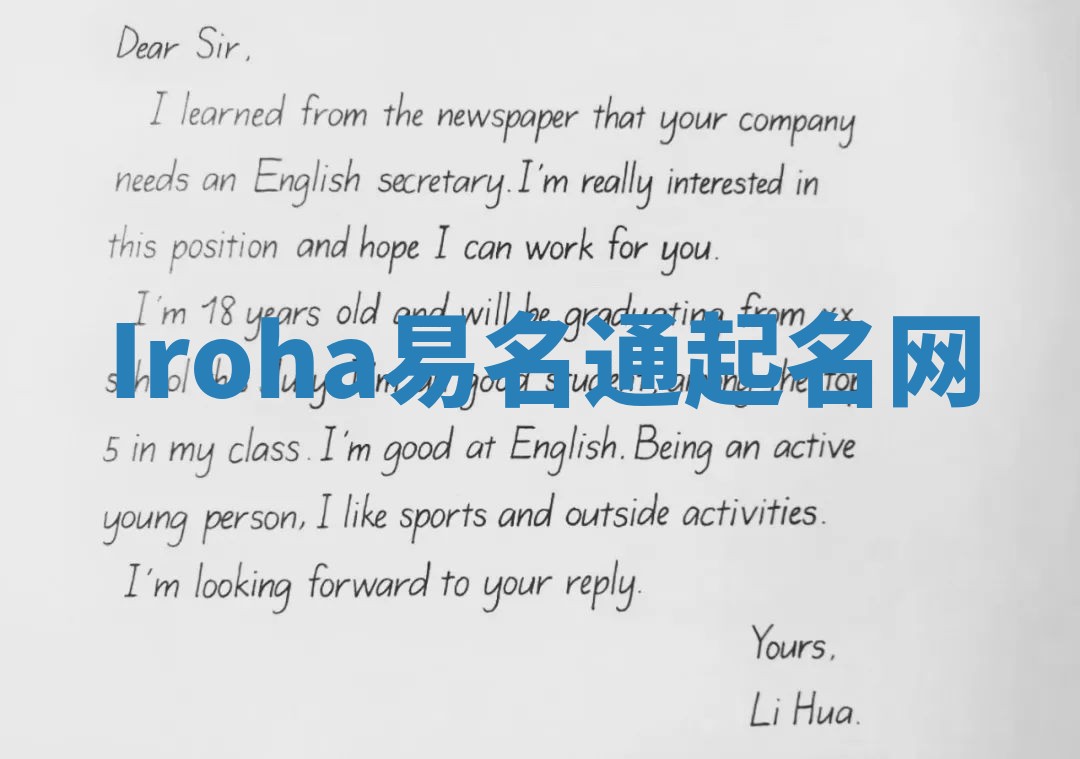 Dear Sir,
I learned from the newspaper that your company
needs an English secretary. I'm really interested in
this position and hope I can work for you.
I'm 18 years old and will be graduating from xx
Iroha易名通起名网
school this July. I'm a good student, among the top
5 in my class. I'm good at English. Being an active
young person, I like sports and outside activities.
I'm looking forward to your reply.
Yours,
Li Hua.